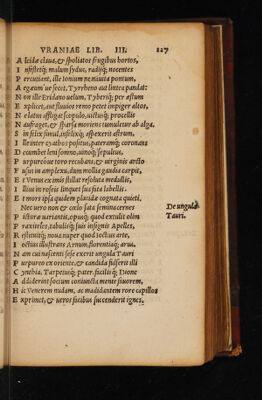 VRANIAE LIB. III. 127
A lcidæ claua, & spoliatos frugibus hortos,
I nsistetq́; malum sydus, radijq́; nocentes
P ercutient, ille Ionium ne nauita pontum,
A egaum' ue secet, Tyrrheno aut lintea pandat:
N on ille Eridano uelum, Tyberiq́; per æstum
E xplicet, aut fluuios remo petet impiger altos,
N e latus affligat scopulo, uictusq́; procellis
N aufraget, & sparsa moriens tumuletur ab alga,
S in felix simul, infelixq́; aspexerit astrum,
I lle inter cyathos positus, pateramq́; coronans
D ecumbet leni somno, uinoq́; sepultus,
P urpureoue toro recubans, & uirginis arcto
V sus in amplexu, dum mollia gaudia carpit,
E t Venus ex imis stillat resoluta medullis,
I llius in roseis linquet suspiria labellis.
E t mors ipsa quidem placida cognata quieti.
Nec uero non & cœlo sata semina cernes
P icturæ uariantis, opusq́; quod extulit olim
P raxiteles, tabulisq́; suis insignis Apelles,
R estituitq́; noua nuper quod Ioctius arte,
I octius illustrans Arnum, florentiaq́; arua.
N am cui nascenti sese exerit ungula Tauri
P urpureo ex oriente, & candida fidserit illi
C ynthia, Tarpeiumq́; pater, facilisq́; Dione
A ddiderint socium coniuncta mente fauorem,
H ic Venerem nudam, ac madidantem rore capillos
E xprimet, & ueros factibus succenderit ignes,
De ungula
Tauri.